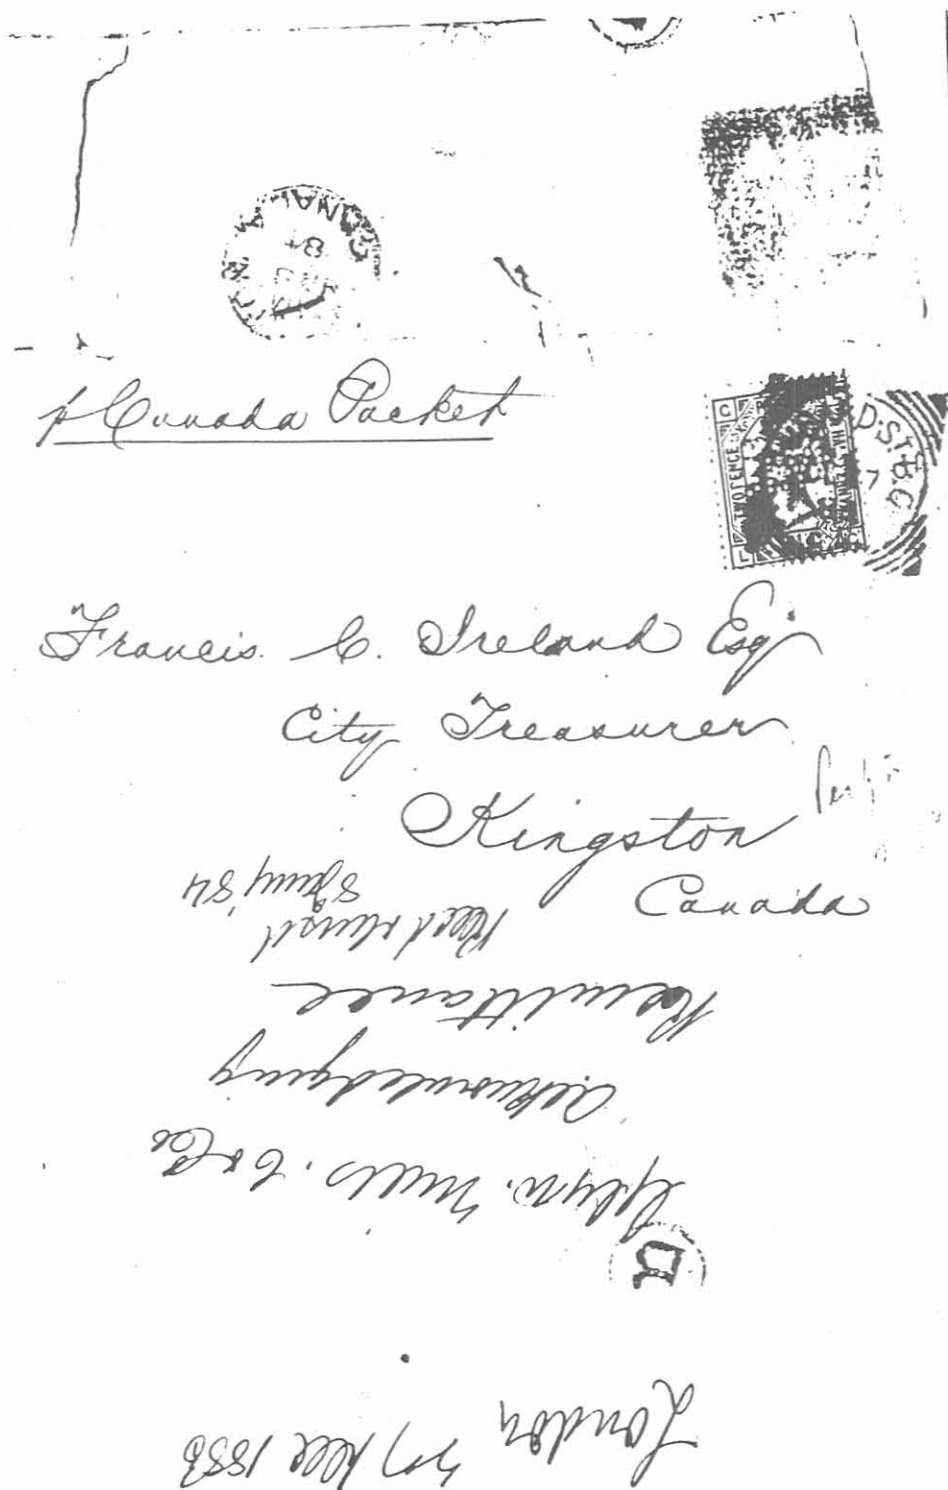 CANADA
84
p Canada Packet
C
TWO PENCE
L
D.ST.B.O
7
Francis. C. Ireland Esqr
City Treasurer
Kingston
Canada
London 27 Dec 1883
D
Glyn. Mills. C & Co
acknowledging
Remittance
Recd
8 Jany '84